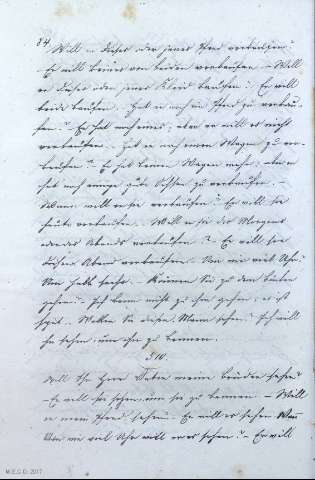 84
Will er dieses oder jenes Pferd verkaufen?
Er will keines von beiden verkaufen – Will
er dieses oder jenes Kleid kaufen? Er will
beide kaufen. Hat er noch ein Pferd zu verkau-
fen? – Er hat noch eines, aber er will es nicht
verkaufen. Hat er noch einen Wagen zu ver-
kaufen? – Er hat keinen Wagen mehr, aber er
hat noch einige gute Ochsen zu verkaufen. –
Wann will er sie verkaufen? Er will sie
heute verkaufen. Will er sie des Morgens
oder des Abends verkaufen? – Er will sie
diesen Abend verkaufen. Um wie viel Uhr?
Um halb sechs. Können Sie zu dem Bäcker
gehen? – Ich kann nicht zu ihm gehen, es ist
spät. Wollen Sie diesen Mann sehen? Ich will
ihn sehen, um ihn zu kennen.
Will Ihr Herr Vater meine Brüder sehen?
– Er will sie sehen, um sie zu kennen – Will
er mein Pferd sehen – Er will es sehen
Um wie viel Uhr will er es sehen? – Er will
M.E.C.D. 2017